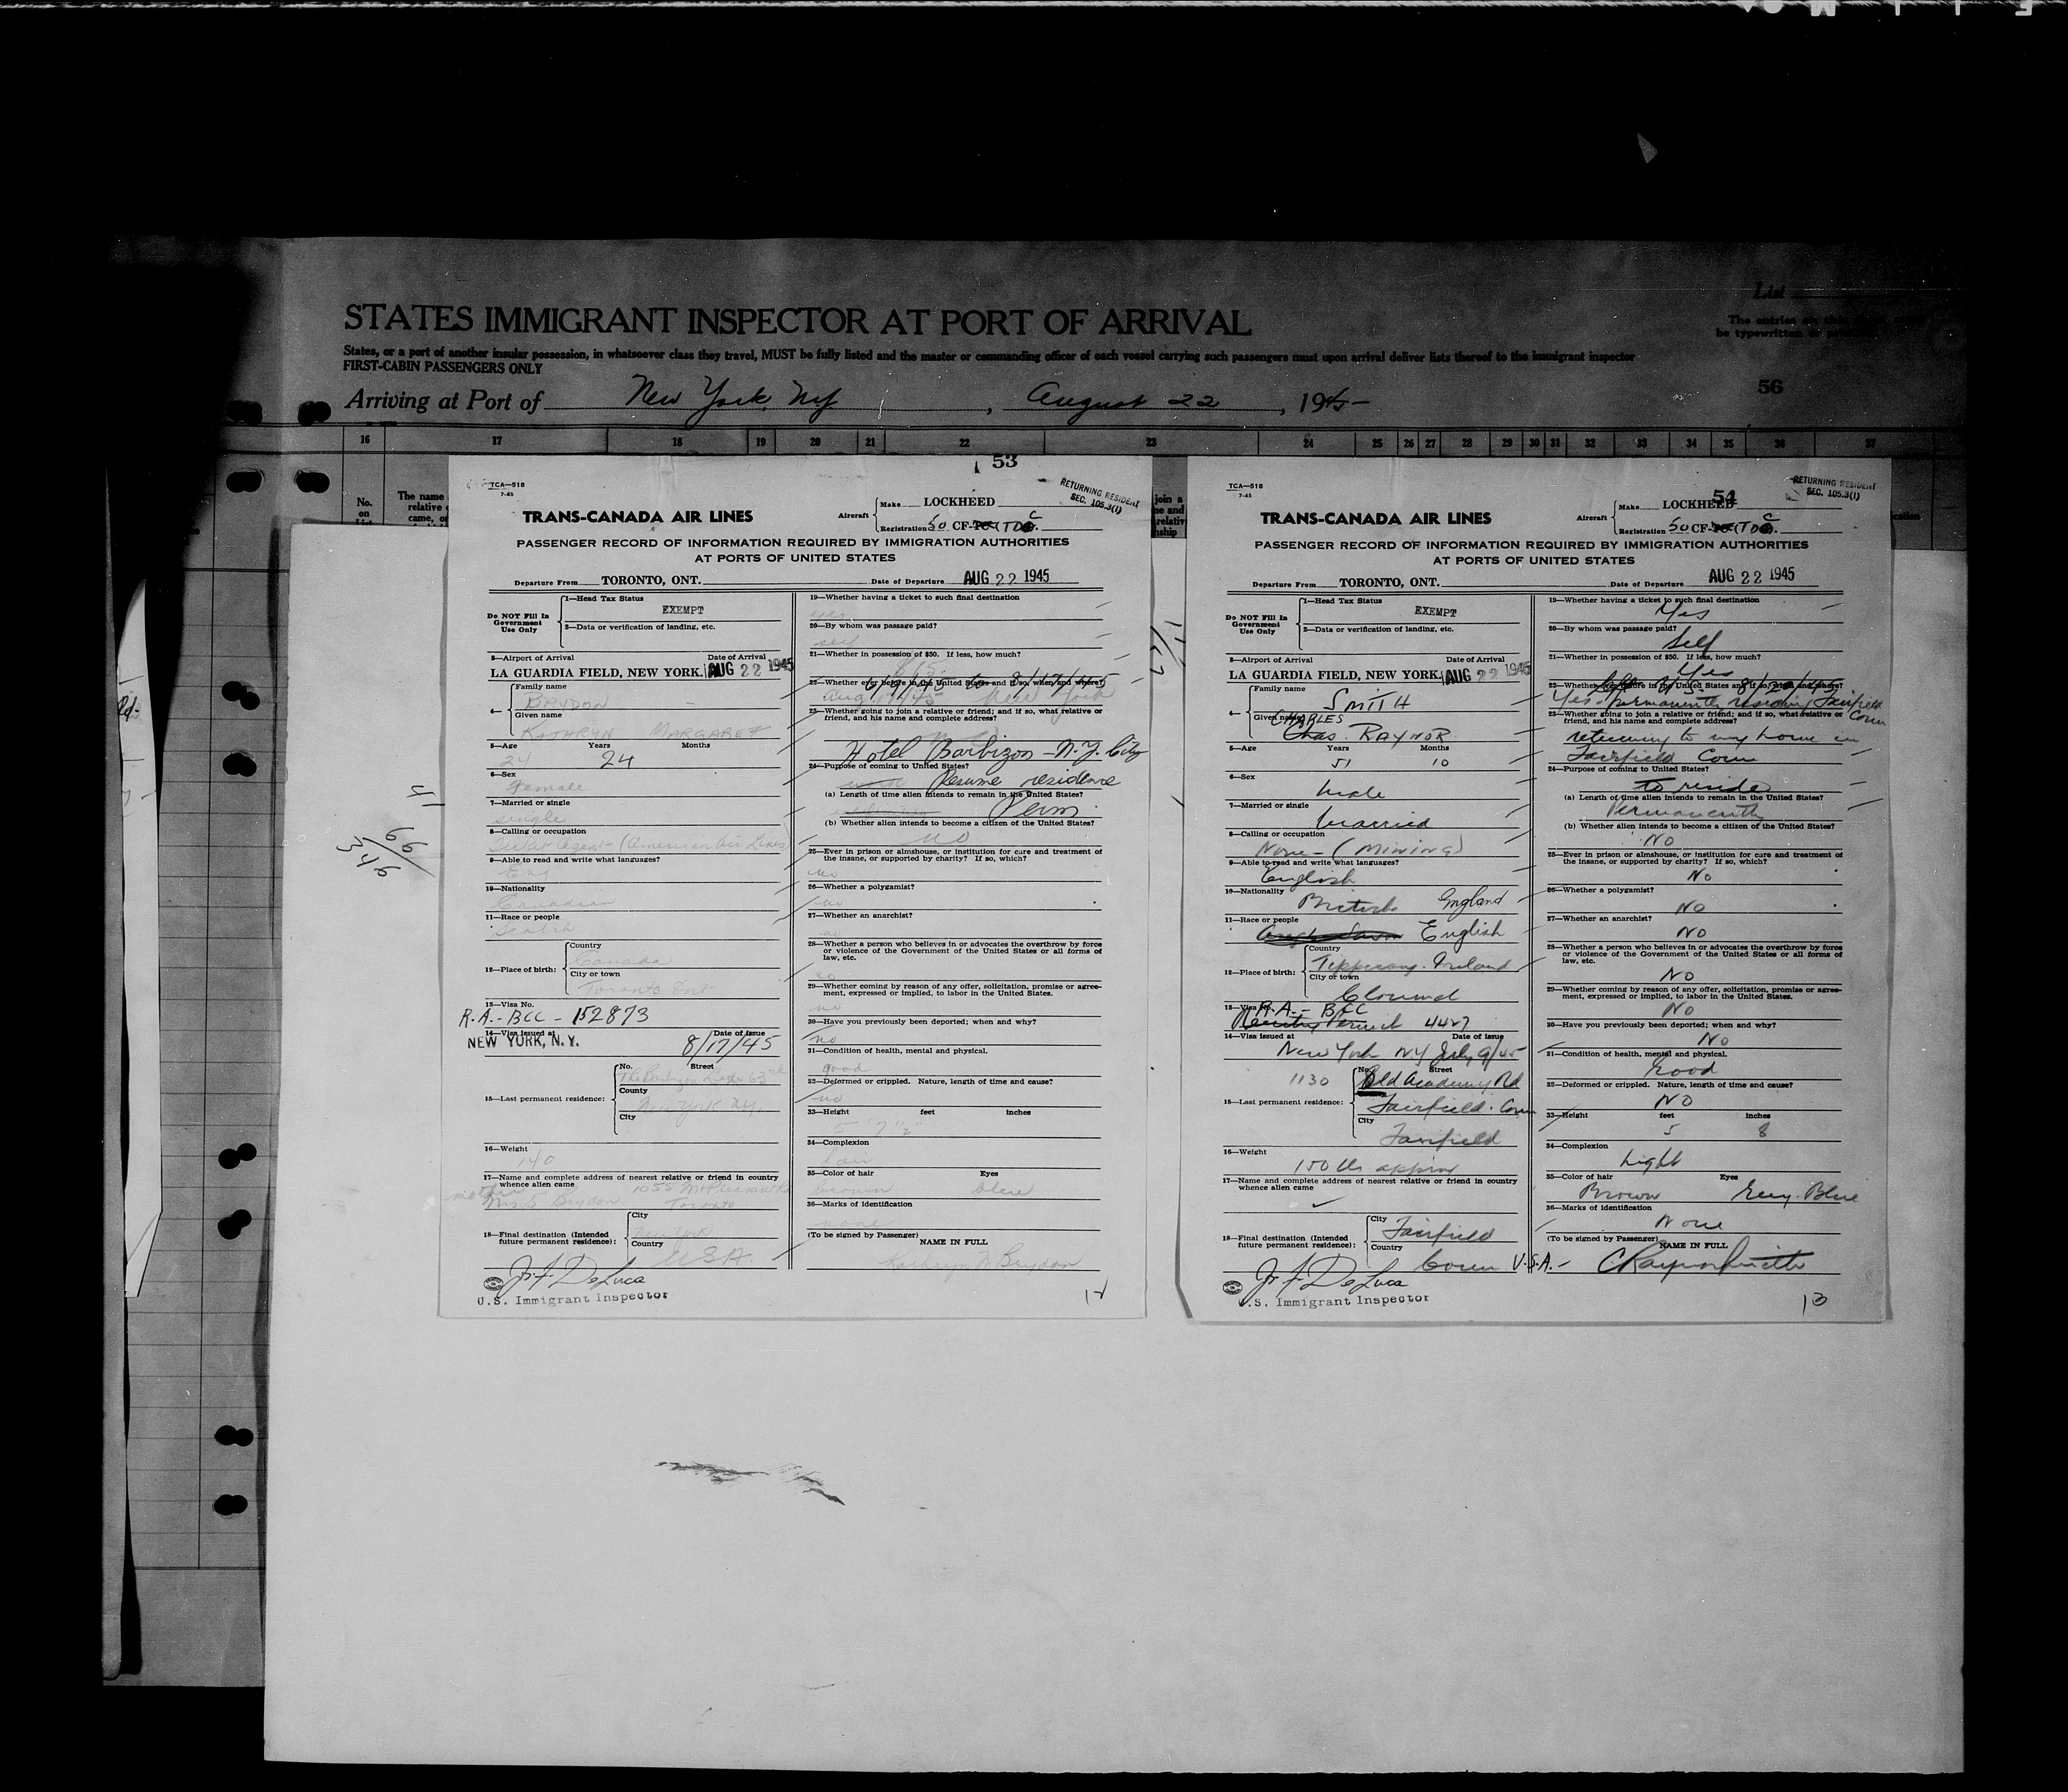 List
STATES IMMIGRANT INSPECTOR AT PORT OF ARRIVAL
The entries on this
be typewritten or
States, or a port of another insular possession, in whatsoever class they travel, MUST be fully listed and the master or commanding officer of each vessel carrying such passengers must upon arrival deliver lists thereof to the immigrant inspector
FIRST-CABIN PASSENGERS ONLY
56
Arriving at Port of New York, N.Y. , August 22 , 1945
16 17 18 19 20 21 22 23 24 25 26 27 28 29 30 31 32 33 34 35 36 37
No.
on
The name
relative
came, or
join a
53
TCA—518
7-45
RETURNING RESIDENT
SEC. 105.3(1)
TRANS-CANADA AIR LINES
Aircraft
Make LOCKHEED
Registration 50 CF-
PASSENGER RECORD OF INFORMATION REQUIRED BY IMMIGRATION AUTHORITIES
AT PORTS OF UNITED STATES
Departure From TORONTO, ONT. Date of Departure AUG 22 1945
Do NOT Fill In Government Use Only
1—Head Tax Status
EXEMPT
2—Data or verification of landing, etc.
3—Airport of Arrival Date of Arrival
LA GUARDIA FIELD, NEW YORK. AUG 22 1945
4—
Family name
BRYDON
Given name
KATHRYN MARGARET
5—Age Years Months
24 24
6—Sex
Female
7—Married or single
single
8—Calling or occupation
Ticket Agent - (American Air Lines)
9—Able to read and write what languages?
Eng
10—Nationality
Canadian
11—Race or people
Scotch
12—Place of birth:
Country
Canada
City or town
Toronto Ont
13—Visa No.
R.A.- BCC - 152873
14—Visa issued at Date of issue
NEW YORK, N.Y. 8/17/45
15—Last permanent residence:
No. Street
The Barbizon 63rd
County
New York N.Y.
City
16—Weight
140
17—Name and complete address of nearest relative or friend in country
whence alien came
mother 1055 Mt Pleasant Rd
Mrs S Brydon Toronto
18—Final destination (Intended
future permanent residence):
City
New York
Country
USA
Jr. F. DeLuca
U.S. Immigrant Inspector
19—Whether having a ticket to such final destination
yes
20—By whom was passage paid?
self
21—Whether in possession of $50. If less, how much?
22—Whether ever before in the United States and if so, when and where?
8/17/45
New York
23—Whether going to join a relative or friend; and if so, what relative or
friend, and his name and complete address?
Hotel Barbizon - N.Y. City
24—Purpose of coming to United States?
Resume residence
(a) Length of time alien intends to remain in the United States?
Perm.
(b) Whether alien intends to become a citizen of the United States?
NO
25—Ever in prison or almshouse, or institution for care and treatment of
the insane, or supported by charity? If so, which?
no
26—Whether a polygamist?
no
27—Whether an anarchist?
no
28—Whether a person who believes in or advocates the overthrow by force
or violence of the Government of the United States or all forms of
law, etc.
no
29—Whether coming by reason of any offer, solicitation, promise or agree-
ment, expressed or implied, to labor in the United States.
no
30—Have you previously been deported; when and why?
no
31—Condition of health, mental and physical.
good
32—Deformed or crippled. Nature, length of time and cause?
no
33—Height feet inches
5 7½"
34—Complexion
fair
35—Color of hair Eyes
brown blue
36—Marks of identification
none
(To be signed by Passenger) NAME IN FULL
Kathryn M Brydon
12
54
TCA—518
7-45
RETURNING RESIDENT
SEC. 105.3(1)
TRANS-CANADA AIR LINES
Aircraft
Make LOCKHEED
Registration 50 CF-
PASSENGER RECORD OF INFORMATION REQUIRED BY IMMIGRATION AUTHORITIES
AT PORTS OF UNITED STATES
Departure From TORONTO, ONT. Date of Departure AUG 22 1945
Do NOT Fill In Government Use Only
1—Head Tax Status
EXEMPT
2—Data or verification of landing, etc.
3—Airport of Arrival Date of Arrival
LA GUARDIA FIELD, NEW YORK. AUG 22 1945
4—
Family name
SMITH
Given name
CHARLES
Chas. RAYNOR
5—Age Years Months
51 10
6—Sex
Male
7—Married or single
Married
8—Calling or occupation
None - (MINING)
9—Able to read and write what languages?
English
10—Nationality
British England
11—Race or people
English
12—Place of birth:
Country
Tipperary. Ireland
City or town
13—Visa No.
R.A. - BCC
Permit 4427
14—Visa issued at Date of issue
New York NY July 9/45
15—Last permanent residence:
No. Street
1130 Old Academy Rd
Fairfield. Conn
City
Fairfield
16—Weight
150 lbs approx
17—Name and complete address of nearest relative or friend in country
whence alien came
18—Final destination (Intended
future permanent residence):
City
Fairfield
Country
Conn U.S.A.-
Jr. F. DeLuca
U.S. Immigrant Inspector
19—Whether having a ticket to such final destination
Yes
20—By whom was passage paid?
Self
21—Whether in possession of $50. If less, how much?
Yes
22—Whether ever before in the United States and if so, when and where?
Yes - permanently residing Fairfield
Conn
23—Whether going to join a relative or friend; and if so, what relative or
friend, and his name and complete address?
returning to my home in
Fairfield Conn
24—Purpose of coming to United States?
to reside
(a) Length of time alien intends to remain in the United States?
Permanently
(b) Whether alien intends to become a citizen of the United States?
NO
25—Ever in prison or almshouse, or institution for care and treatment of
the insane, or supported by charity? If so, which?
No
26—Whether a polygamist?
NO
27—Whether an anarchist?
NO
28—Whether a person who believes in or advocates the overthrow by force
or violence of the Government of the United States or all forms of
law, etc.
NO
29—Whether coming by reason of any offer, solicitation, promise or agree-
ment, expressed or implied, to labor in the United States.
No
30—Have you previously been deported; when and why?
No
31—Condition of health, mental and physical.
Good
32—Deformed or crippled. Nature, length of time and cause?
NO
33—Height feet inches
5 8
34—Complexion
Light
35—Color of hair Eyes
Brown Grey-Blue
36—Marks of identification
None
(To be signed by Passenger) NAME IN FULL
C Raynor Smith
13
41
66
346